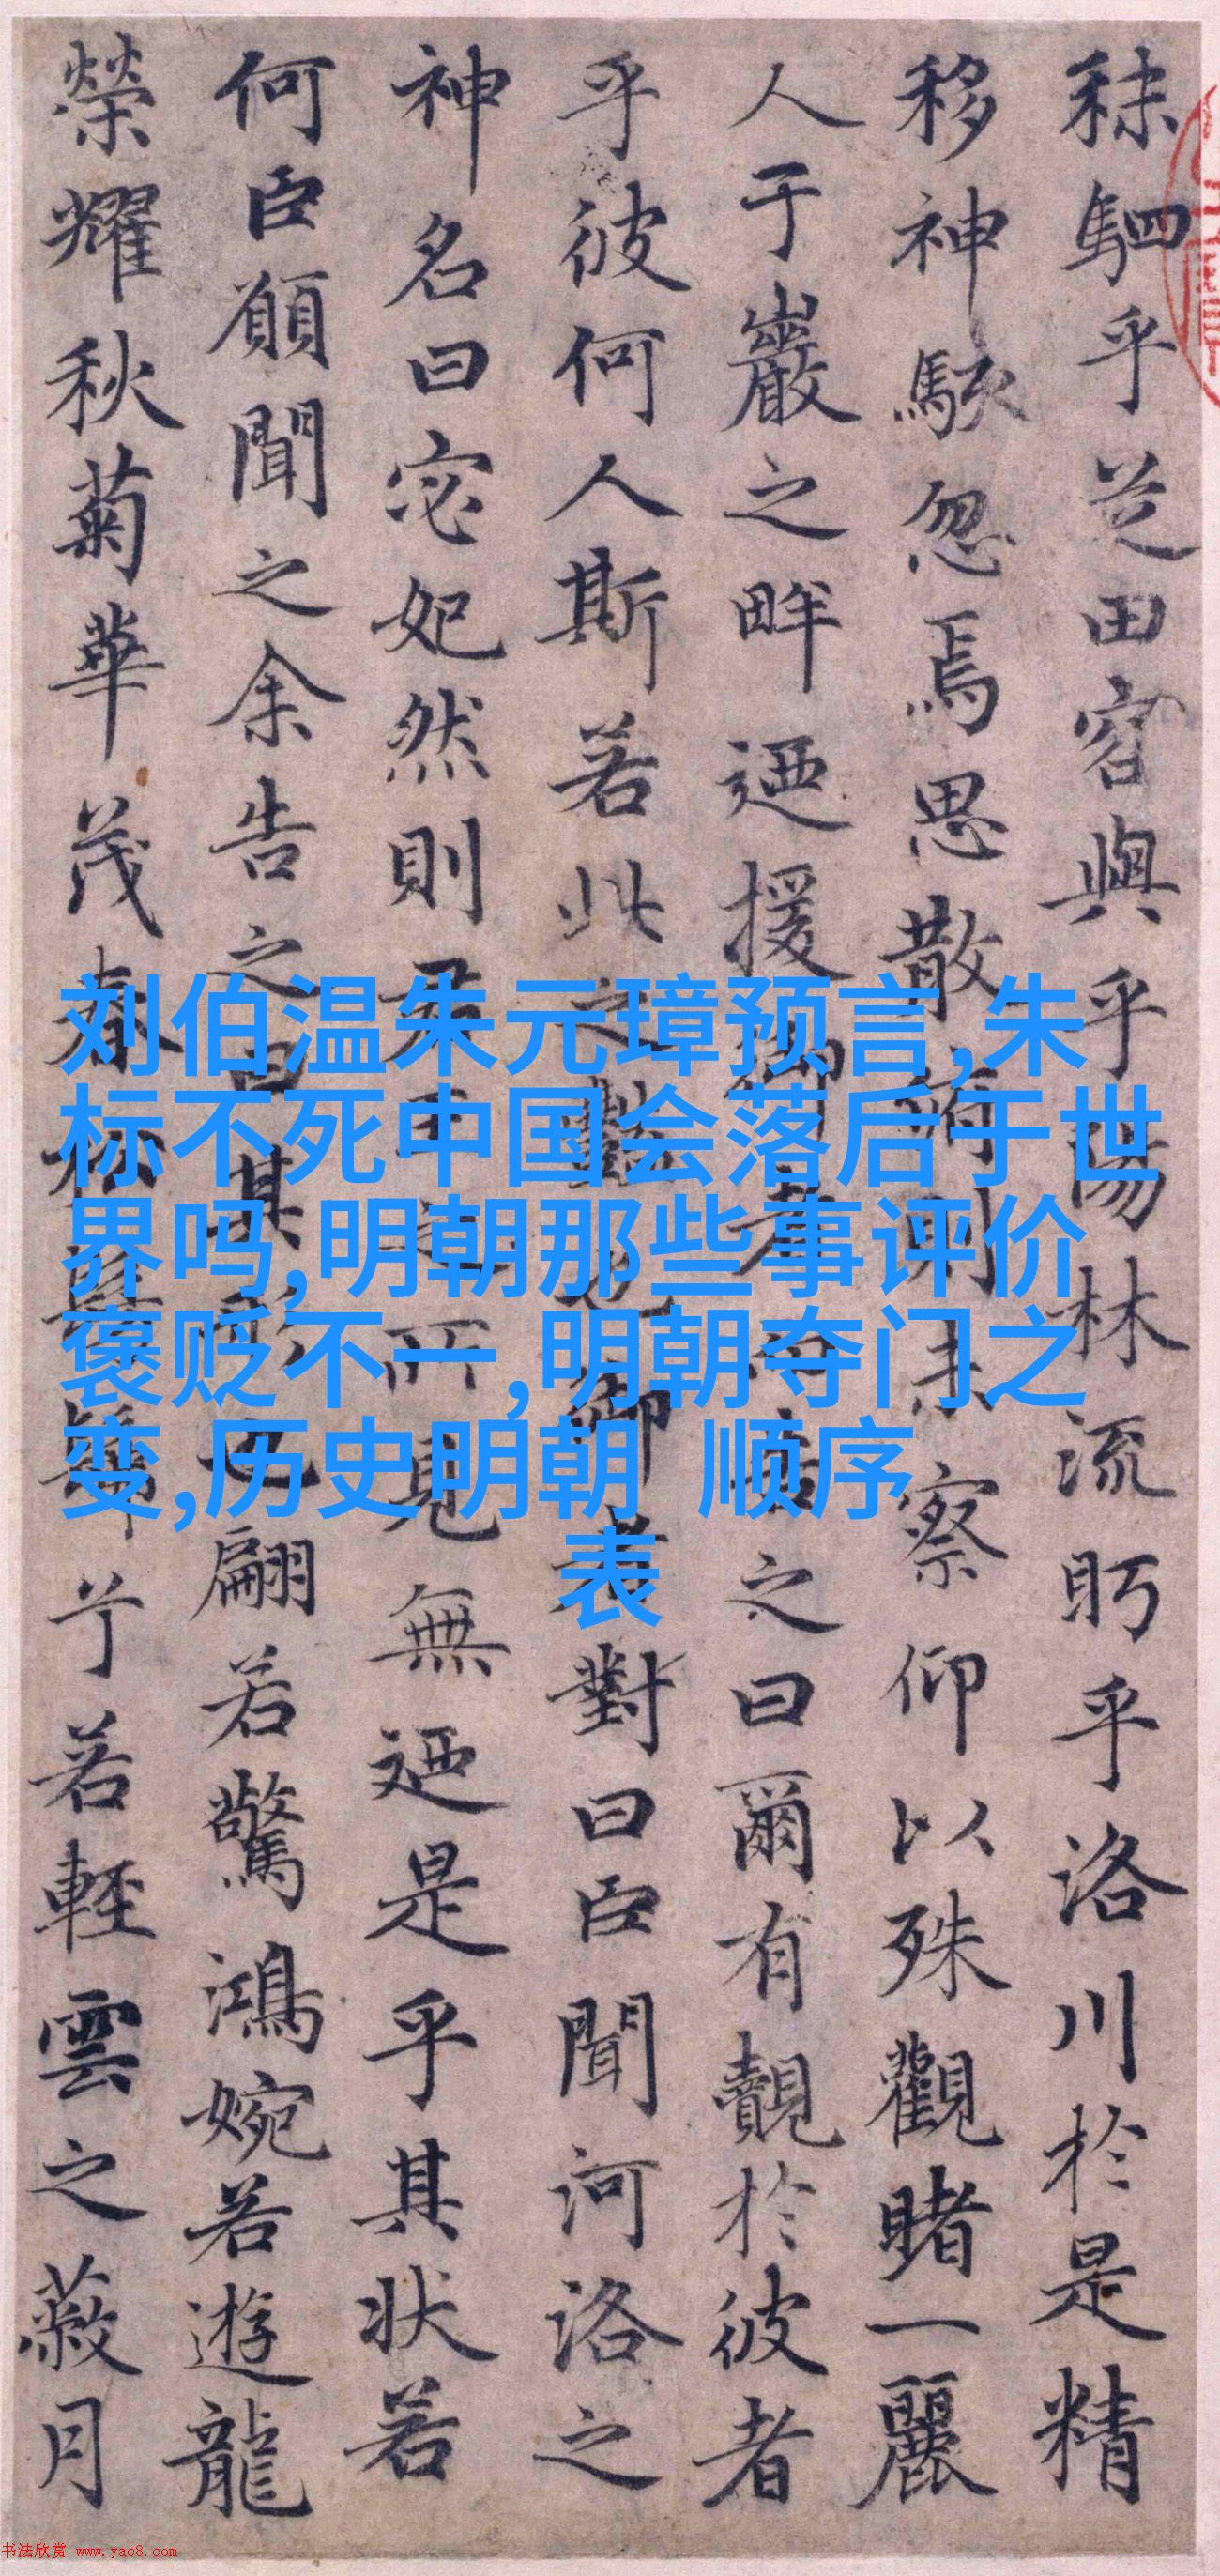 刘伯温朱元璋预言,朱
标不死中国会落后于世
界吗,明朝那些事评价
褒贬不一,明朝夺门之
变,历史明朝 顺序
表
秣駟乎芝田容與乎陽林流眄乎洛川於是精
移神駭忽焉思散俯則未察仰以殊觀睹一麗
人于巖之畔迺援御者而告之曰爾有覿於彼者
乎彼何人斯若此之豔也御者對曰臣聞河洛之
神名曰宓妃然則君王之所見無迺是乎其狀若
何臣願聞之余告之曰其形也翩若驚鴻婉若遊龍
榮耀秋菊華茂春松髣髴兮若輕雲之蔽月
书法欣赏 www.yac8.com